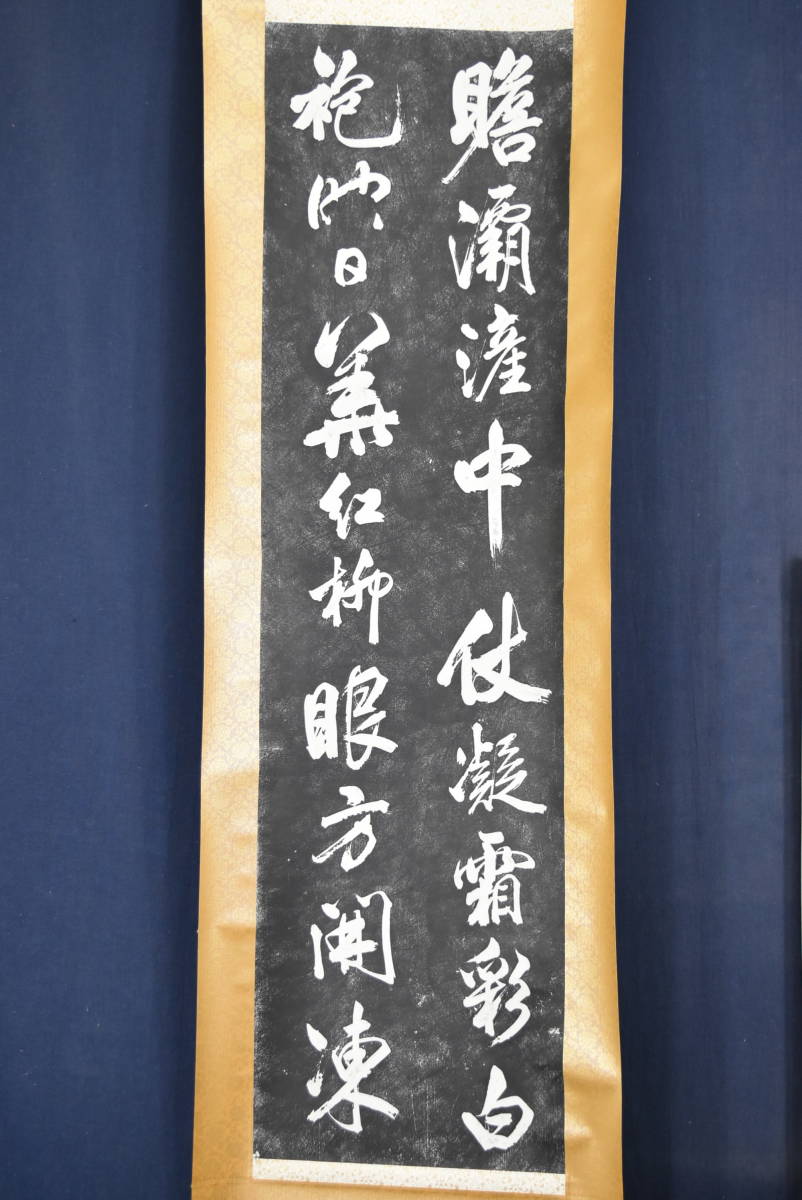 瞻灞滻中仗凝霜彩白
袍映日華紅柳眼方開凍